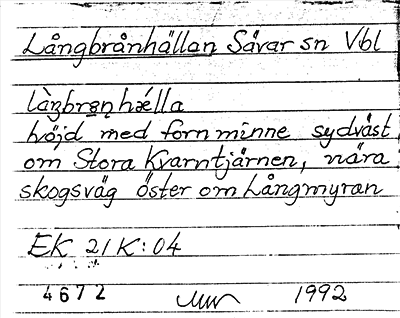 Långbrånhällan Sävar sn Vbl
làŋbra̱n̥hǽlla
höjd med fornminne sydväst
om Stora Kvarntjärnen, nära
skogsväg öster om Långmyran
EK 21K:04
4672 1992